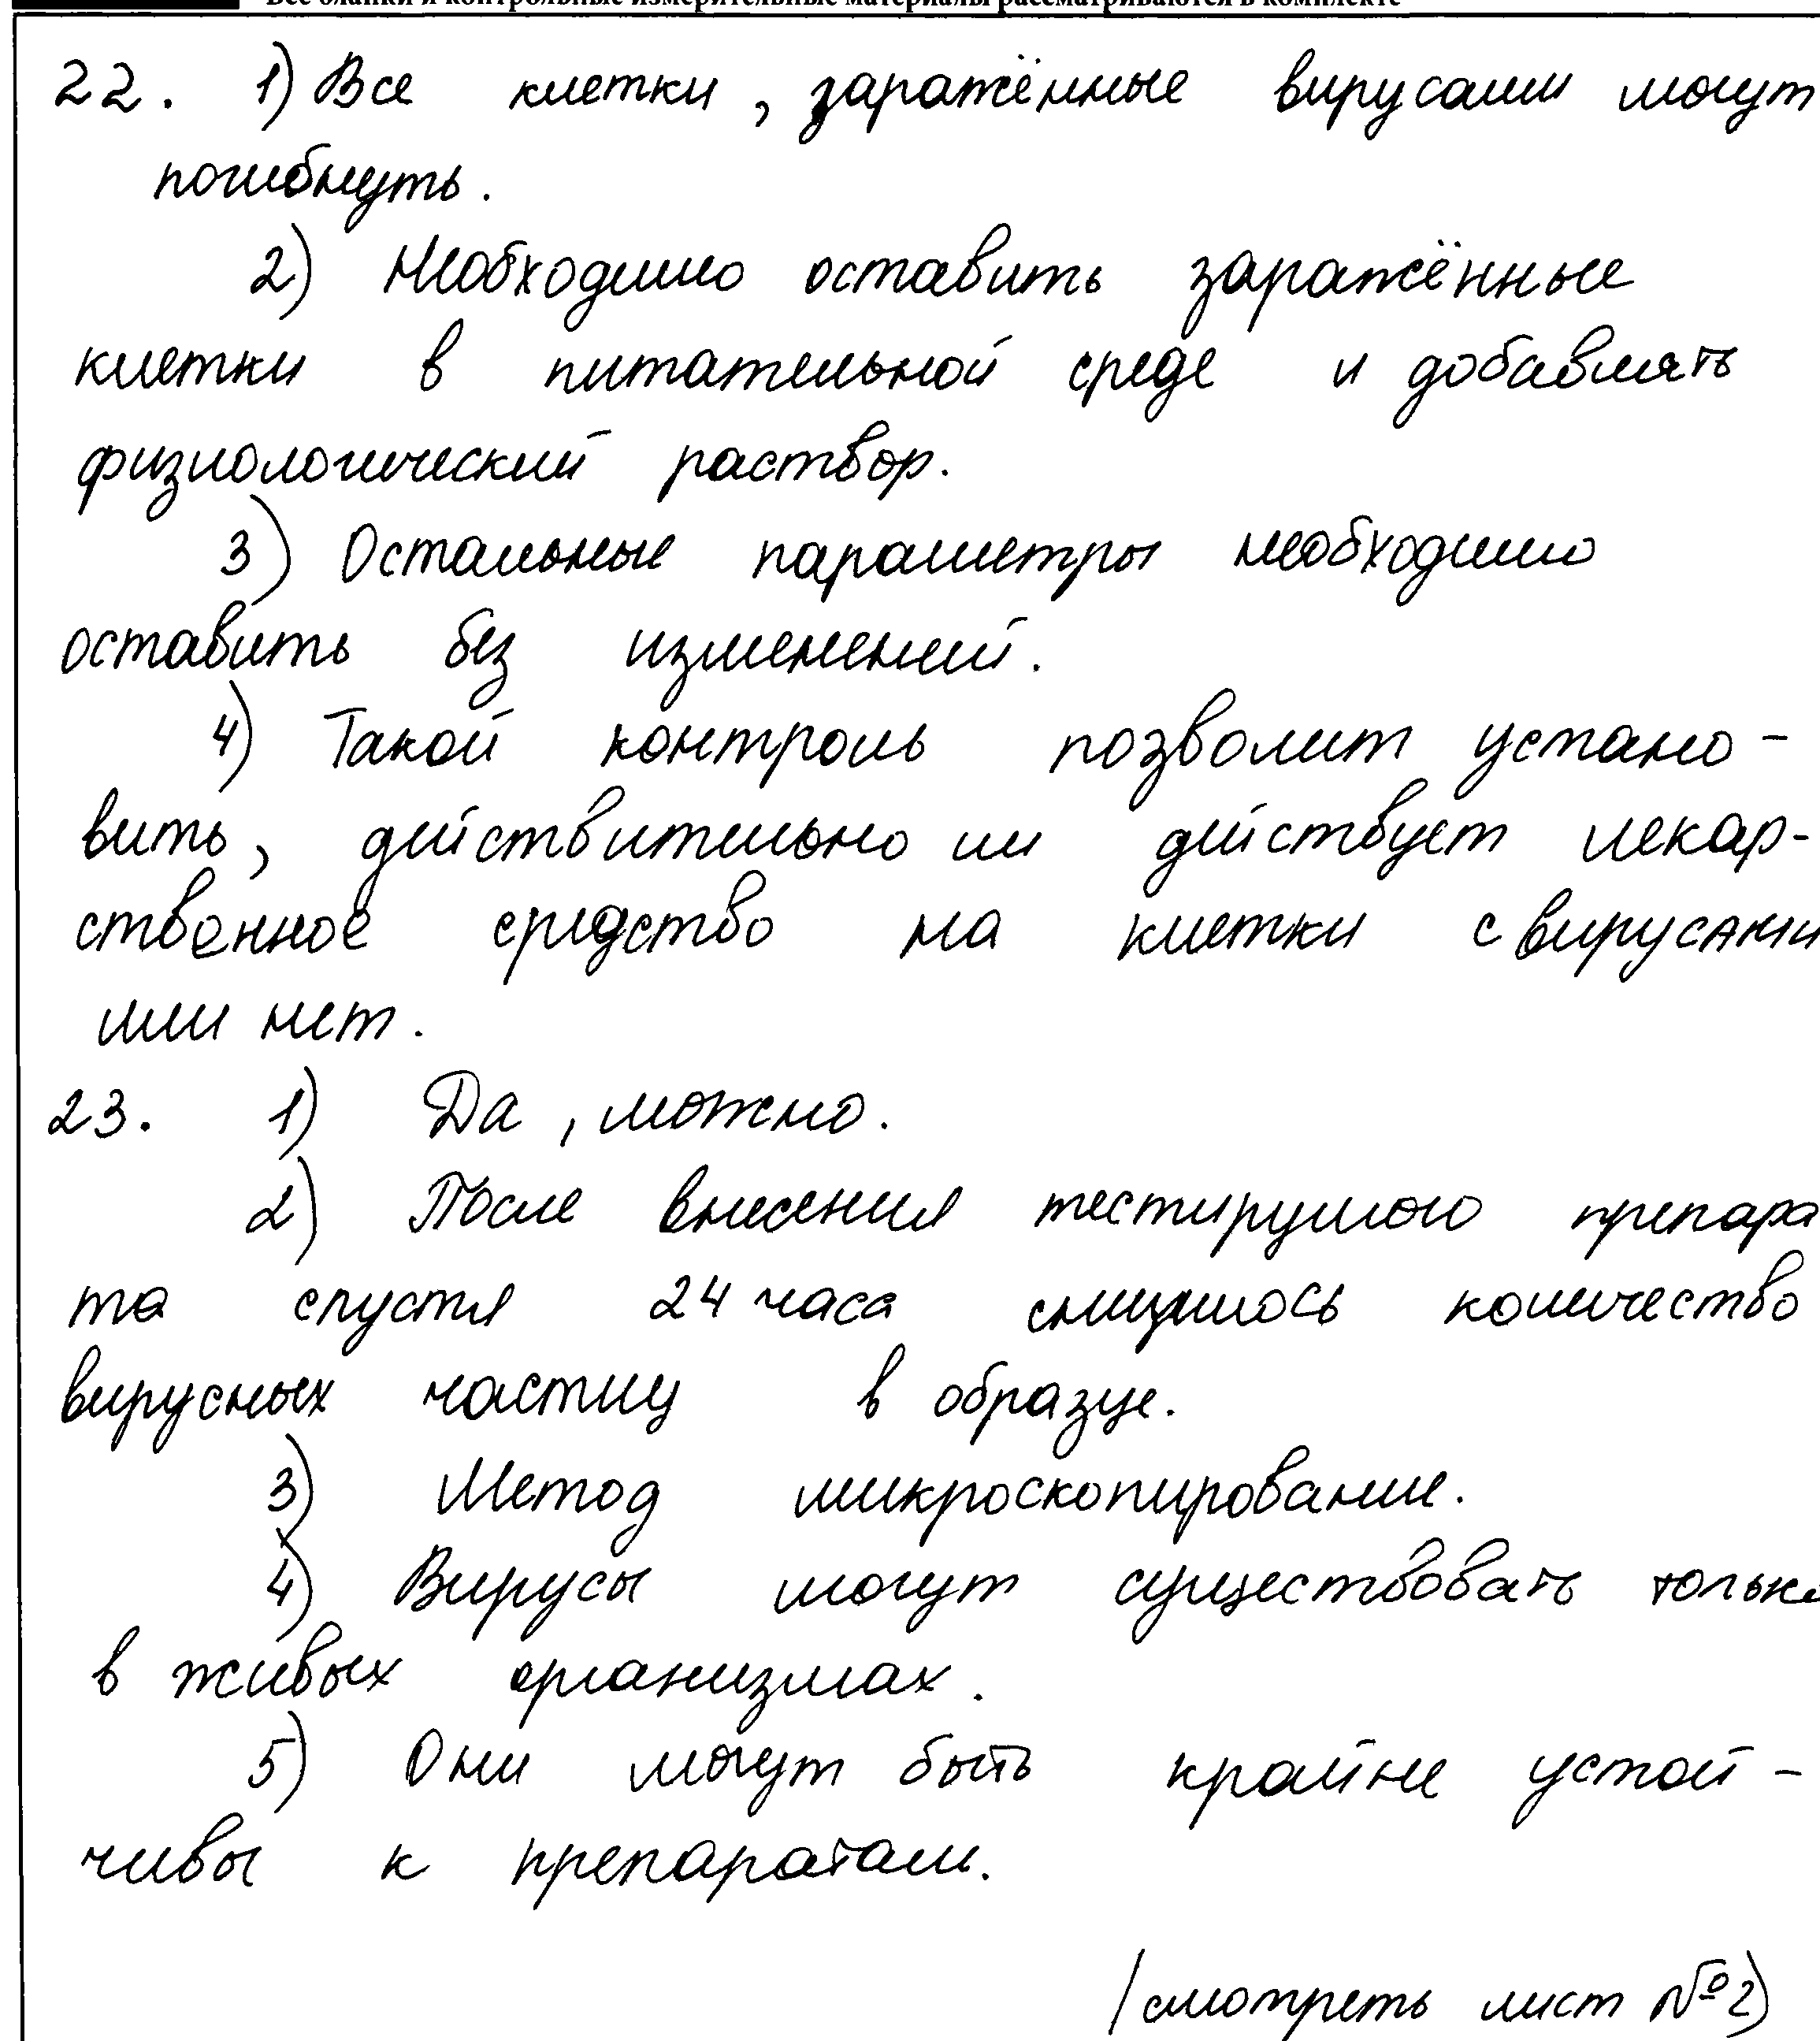 Все бланки и контрольные измерительные материалы рассматриваются в комплекте
22. 1) Все клетки, заражённые вирусами могут
погибнуть.
2) Необходимо оставить заражённые
клетки в питательной среде и добавлять
физиологический раствор.
3) Остальные параметры необходимо
оставить без изменений.
4) Такой контроль позволит устано-
вить, действительно ли действует лекар-
ственное средство на клетки с вирусами
или нет.
23. 1) Да, можно.
2) После внесения тестируемого препара
та спустя 24 часа снизилось количество
вирусных частиц в образце.
3) Метод микроскопирование.
4) Вирусы могут существовать только
в живых организмах.
5) Они могут быть крайне устой-
чивы к препаратам.
(смотреть лист №2)